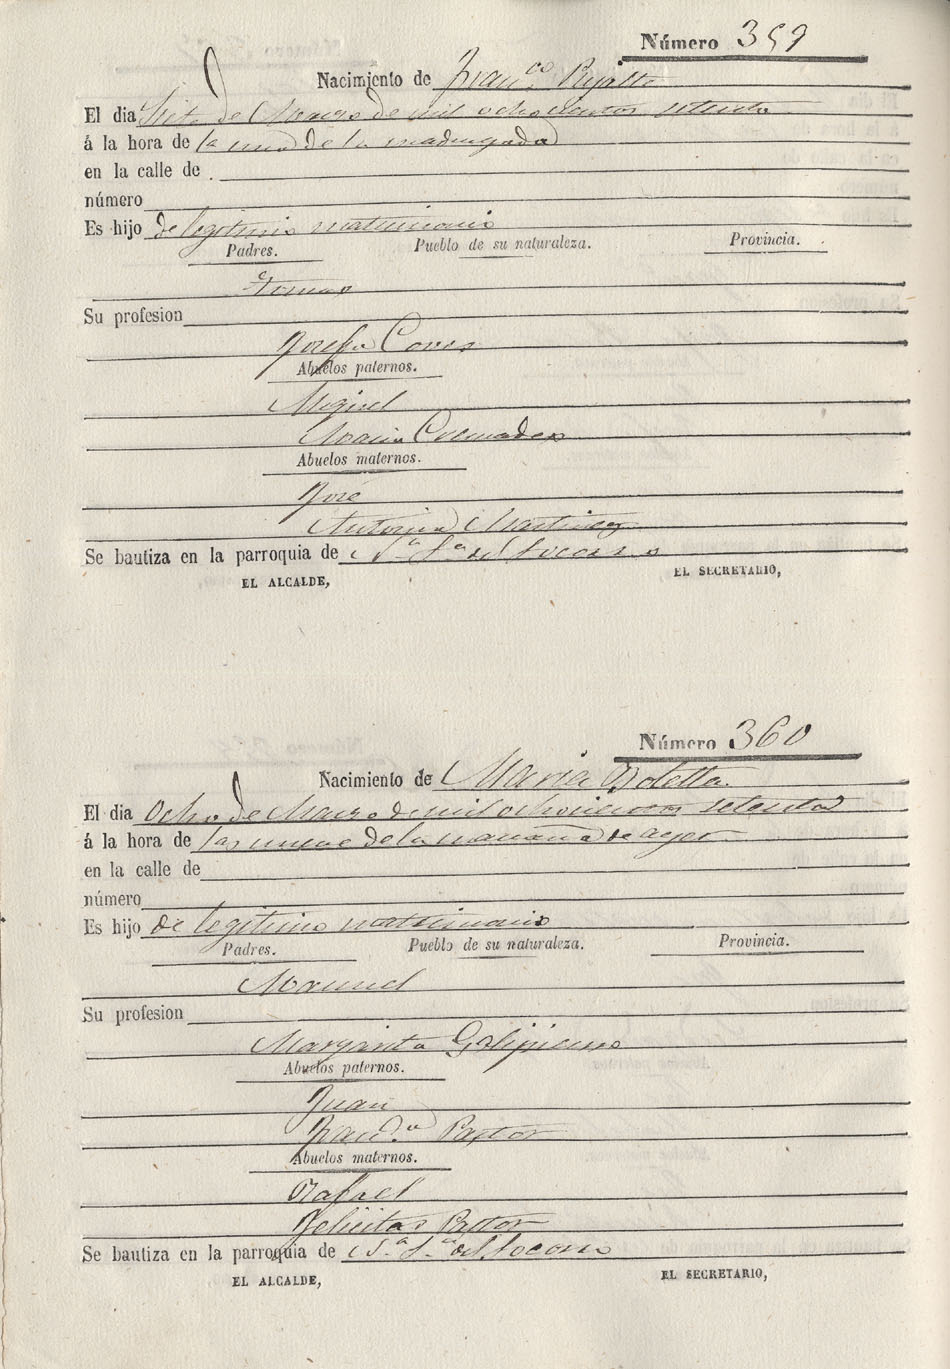 Número 359
Nacimiento de Fran.co Pujalte
El dia Siete de Marzo de mil ochocientos setenta
á la hora de la una de la madrugada
en la calle de
número
Es hijo de legitimo matrimonio
Padres. Pueblo de su naturaleza. Provincia.
Tomas
Su profesion
Josefa Coves
Abuelos paternos.
Miguel
Maria Cremades
Abuelos maternos.
José
Antonia Martinez
Se bautiza en la parroquia de N.a S.a del Socorro
EL ALCALDE, EL SECRETARIO,
Número 360
Nacimiento de Maria Botella
El dia Ocho de Marzo de mil ochocientos setenta
á la hora de las nueve de la mañana de ayer
en la calle de
número
Es hijo de legitimo matrimonio
Padres. Pueblo de su naturaleza. Provincia.
Manuel
Su profesion
Margarita
Abuelos paternos.
Juan
Fran.ca Pastor
Abuelos maternos.
Rafael
Felicitas Pastor
Se bautiza en la parroquia de N.a S.a del Socorro
EL ALCALDE, EL SECRETARIO,